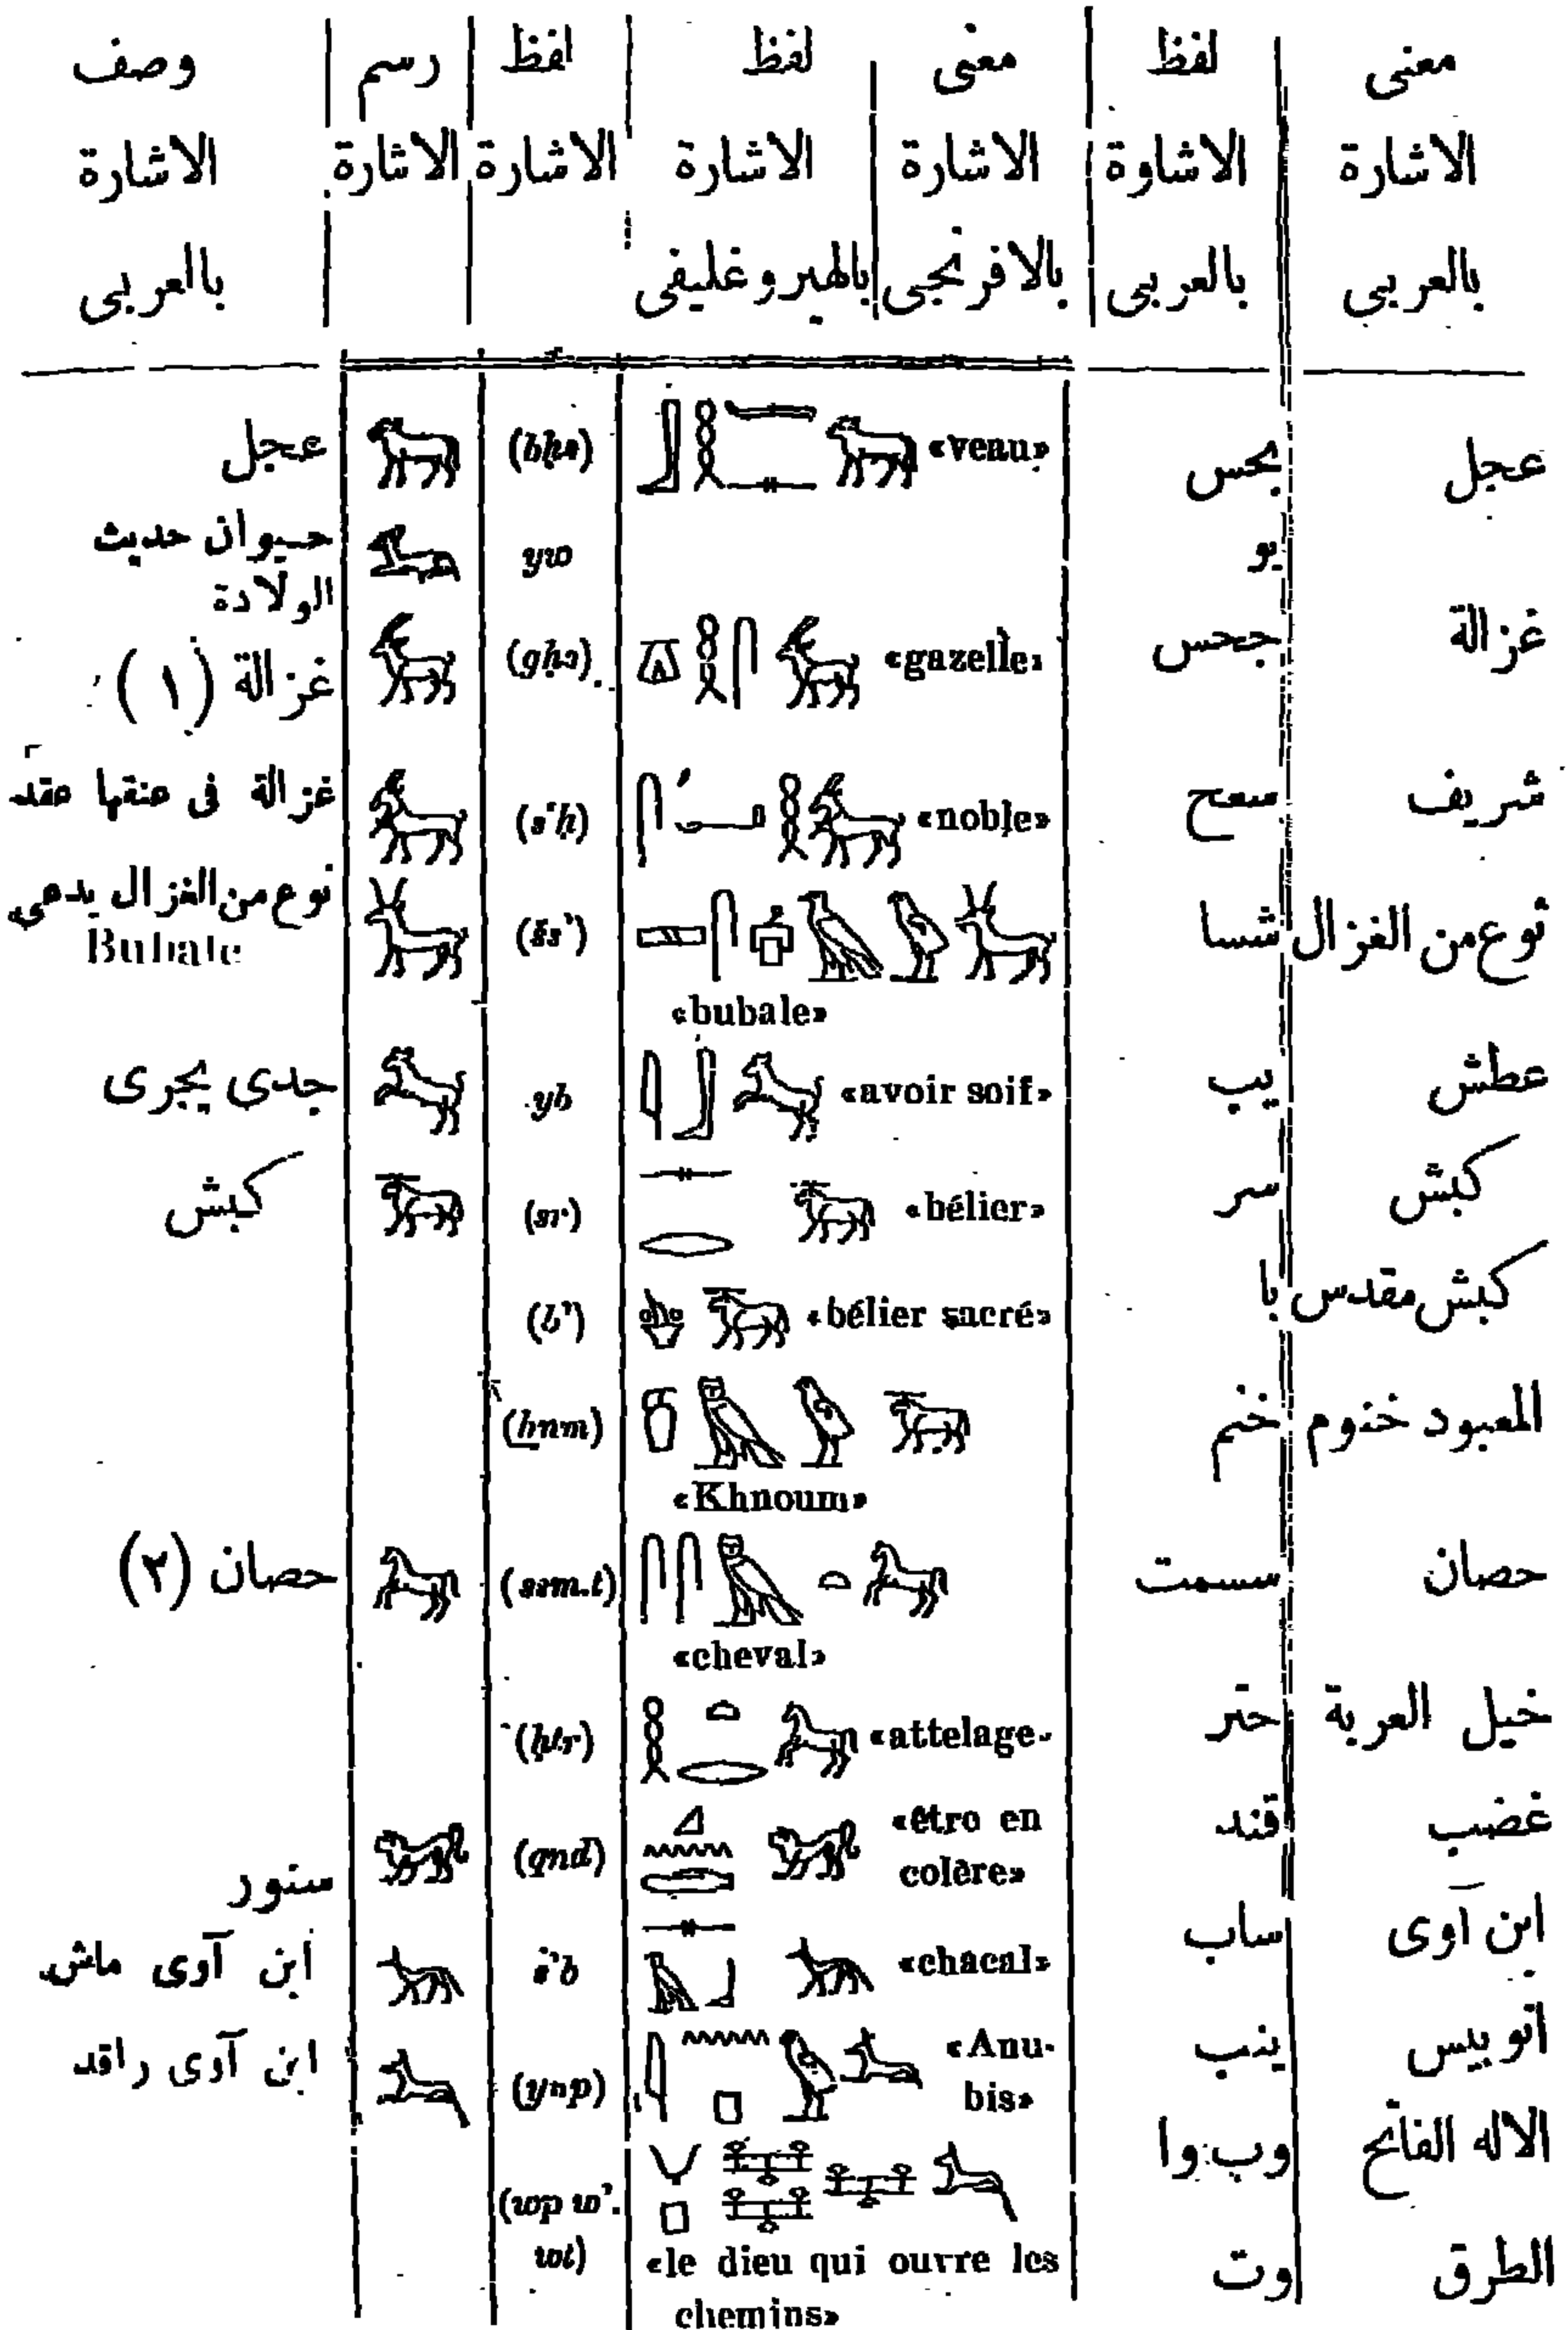 معنى | لفظ | معنى | لفظ | لفظ | رسم | وصف
الاشارة | الاشاوة | الاشارة | الاشارة | الاشارة | الاشارة | الاشارة
بالعربى | بالعربى | بالافرنجى | بالهيروغليفى | بالعربى
عجل | بحس | «veau» | (bḥs) | عجل
يو | yw | حيوان حديث
الولادة
غزالة | جحس | «gazelle» | (gḥs) | غزالة (١)
شريف | سعح | «noble» | (s'ḥ) | غزالة فى عنقها عقد
نوع من الغزال | شسا | «bubale» | (šs') | نوع من الغزال يدعى
Bubale
عطش | يب | «avoir soif» | yb | جدى يجرى
كبش | سر | «bélier» | (sr) | كبش
كبش مقدس | با | «bélier sacré» | (b')
المعبود خنوم | خنم | «Khnoum» | (ẖnm)
حصان | سسمت | «cheval» | (ssm.t) | حصان (٢)
خيل العربة | حتر | «attelage» | (ḥtr)
غضب | قند | «être en
colère» | (qnd) | سنور
ابن آوى | ساب | «chacal» | s'b | ابن آوى ماش
انوبيس | ينب | «Anu-
bis» | (ynp) | ابن آوى راقد
الاله الفاتح | وب وا | (wp w'.
الطرق | وت | «le dieu qui ouvre les | wt)
chemins»